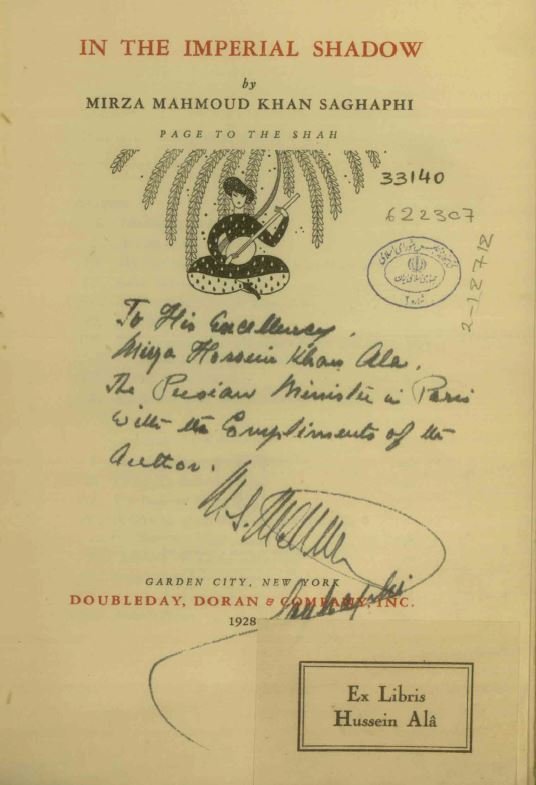 IN THE IMPERIAL SHADOW
by
MIRZA MAHMOUD KHAN SAGHAPHI
PAGE TO THE SHAH
33140
622307
2-12712
To His Excellency.
Mirza Hossein Khan Ala.
The Persian Minister in Paris
with the Compliments of the
Author.
Saghaphi
GARDEN CITY, NEW YORK
DOUBLEDAY, DORAN & COMPANY, INC.
1928
Ex Libris
Hussein Alâ